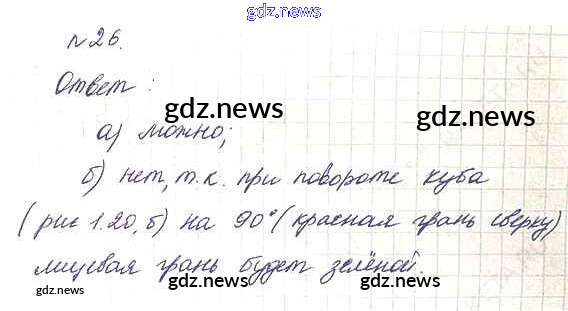 gdz.news
№26.
Ответ:
gdz.news
gdz.news
а) можно;
б) нет, т.к. при повороте куба
(рис 1.20, б) на 90° (красная грань сверху)
gdz.news
gdz.news
лицевая грань будет зелёной.
gdz.news
gdz.news